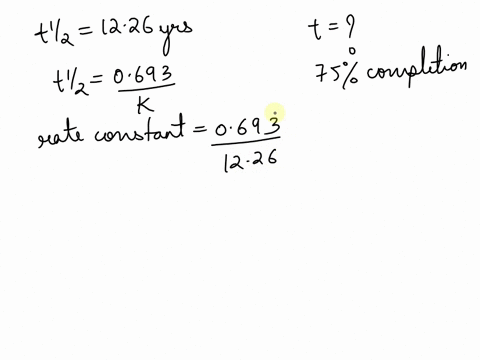 t½ = 12.26 yrs
t½ = 0.693 / K
rate constant = 0.693 / 12.26
t = ?
75% completion